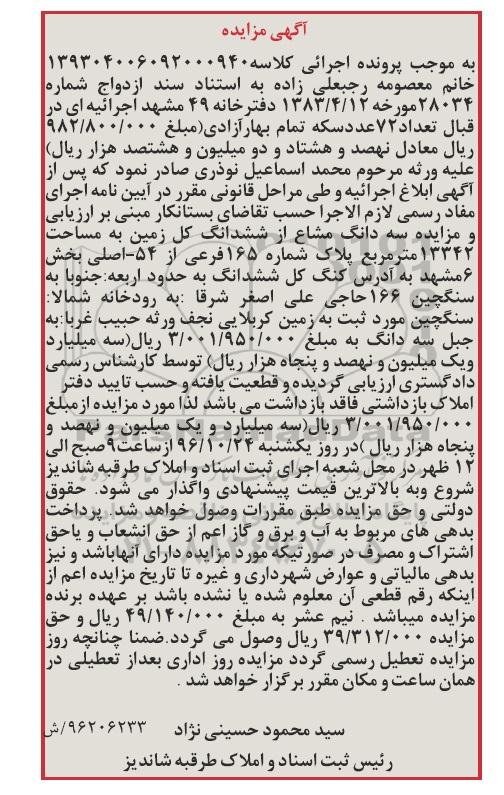 آگهی مزایده
به موجب پرونده اجرائی کلاسه۱۳۹۳۰۴۰۰۶۰۹۲۰۰۰۹۴۰
خانم معصومه رجبعلی زاده به استناد سند ازدواج شماره
۲۸۰۳۴مورخه ۱۳۸۳/۴/۱۲ دفترخانه ۴۹ مشهد اجرائیه ای در
قبال تعداد۷۲عددسکه تمام بهارآزادی(مبلغ ۹۸۲/۸۰۰/۰۰۰
ریال معادل نهصد و هشتاد و دو میلیون و هشتصد هزار ریال)
علیه ورثه مرحوم محمد اسماعیل نوذری صادر نمود که پس از
آگهی ابلاغ اجرائیه و طی مراحل قانونی مقرر در آیین نامه اجرای
مفاد رسمی لازم الاجرا حسب تقاضای بستانکار مبنی بر ارزیابی
و مزایده سه دانگ مشاع از ششدانگ کل زمین به مساحت
۱۳۳۴۲مترمربع پلاک شماره ۱۶۵فرعی از ۵۴-اصلی بخش
۶مشهد به آدرس کنگ کل ششدانگ به حدود اربعه:جنوبا به
سنگچین ۱۶۶حاجی علی اصغر شرقا :به رودخانه شمالا:
سنگچین مورد ثبت به زمین کربلایی نجف ورثه حبیب غربا:به
جبل سه دانگ به مبلغ ۳/۰۰۱/۹۵۰/۰۰۰ ریال(سه میلیارد
ویک میلیون و نهصد و پنجاه هزار ریال) توسط کارشناس رسمی
دادگستری ارزیابی گردیده و قطعیت یافته و حسب تایید دفتر
املاک بازداشتی فاقد بازداشت می باشد لذا مورد مزایده ازمبلغ
۳/۰۰۱/۹۵۰/۰۰۰ ریال(سه میلیارد و یک میلیون و نهصد و
پنجاه هزار ریال )در روز یکشنبه ۹۶/۱۰/۲۴ ازساعت۹صبح الی
۱۲ ظهر در محل شعبه اجرای ثبت اسناد و املاک طرقبه شاندیز
شروع وبه بالاترین قیمت پیشنهادی واگذار می شود. حقوق
دولتی و حق مزایده طبق مقررات وصول خواهد شد. پرداخت
بدهی های مربوط به آب و برق و گاز اعم از حق انشعاب و یاحق
اشتراک و مصرف در صورتیکه مورد مزایده دارای آنهاباشد و نیز
بدهی مالیاتی و عوارض شهرداری و غیره تا تاریخ مزایده اعم از
اینکه رقم قطعی آن معلوم شده یا نشده باشد بر عهده برنده
مزایده میباشد . نیم عشر به مبلغ ۴۹/۱۴۰/۰۰۰ ریال و حق
مزایده ۳۹/۳۱۲/۰۰۰ ریال وصول می گردد.ضمنا چنانچه روز
مزایده تعطیل رسمی گردد مزایده روز اداری بعداز تعطیلی در
همان ساعت و مکان مقرر برگزار خواهد شد .
سید محمود حسینی نژاد ۹۶۲۰۶۲۳۳/ش
رئیس ثبت اسناد و املاک طرقبه شاندیز